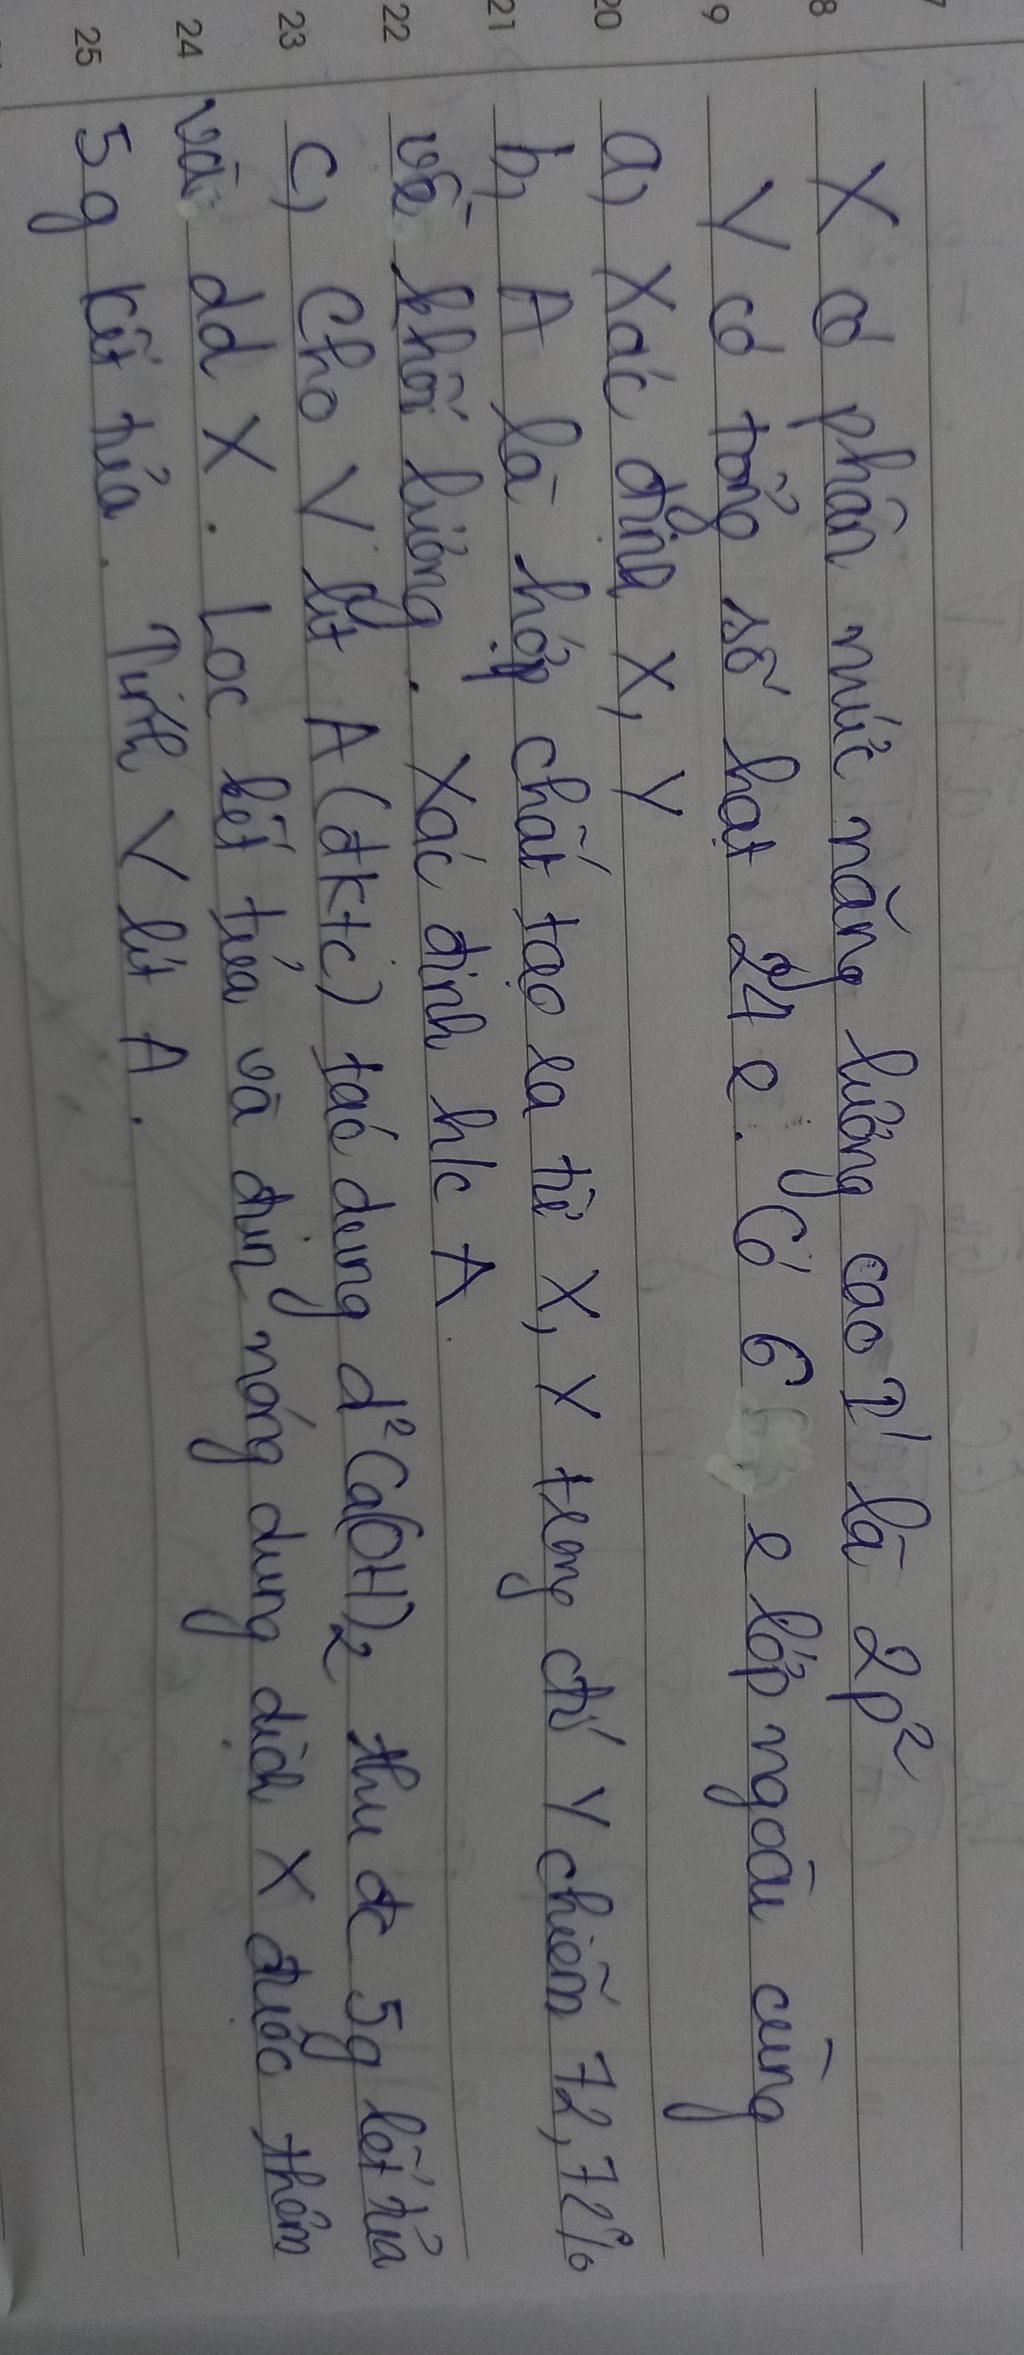 7
8
9
20
21
22
23
24
25
X có phân mức năng lượng cao n' là 2p²
Y có tổng số hạt 24 e. Có 6 e lớp ngoài cùng
a, Xác định X, Y
b, A là hợp chất tạo ra từ X, Y trong đó Y chiếm 72,72%
về khối lượng. Xác định h/c A.
c, Cho V lít A (đktc) tác dụng d² Ca(OH)2 thu đc 5g kết tủa
và dd X. Lọc kết tủa và đun nóng dung dịch X được thêm
5g kết tủa. Tính V lít A.